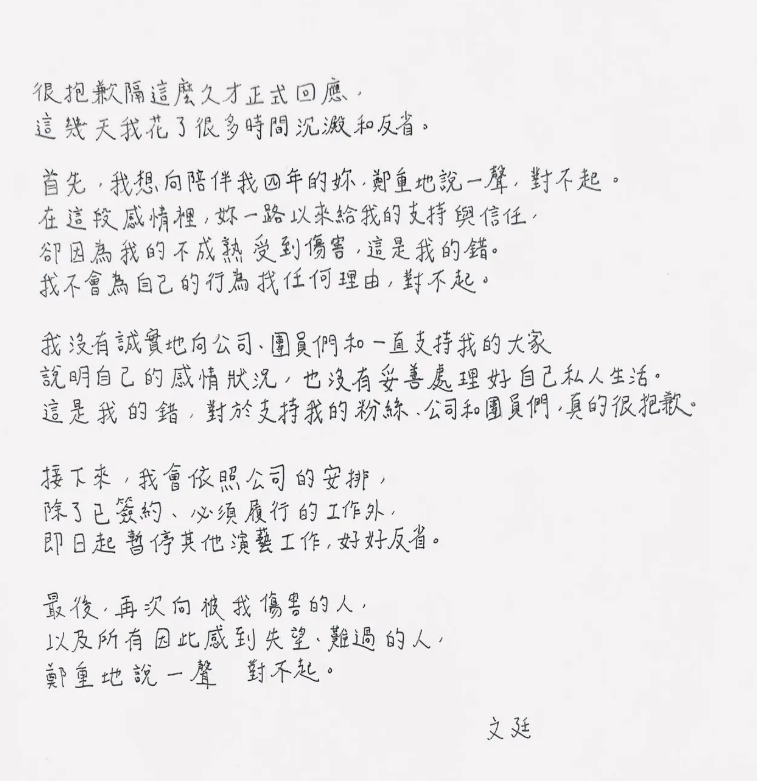 很抱歉隔這麼久才正式回應，
這幾天我花了很多時間沉澱和反省。
首先，我想向陪伴我四年的妳，鄭重地說一聲，對不起。
在這段感情裡，妳一路以來給我的支持與信任，
卻因為我的不成熟受到傷害，這是我的錯。
我不會為自己的行為找任何理由，對不起。
我沒有誠實地向公司、團員們和一直支持我的大家
說明自己的感情狀況，也沒有妥善處理好自己私人生活。
這是我的錯，對於支持我的粉絲、公司和團員們，真的很抱歉。
接下來，我會依照公司的安排，
除了已簽約、必須履行的工作外，
即日起暫停其他演藝工作，好好反省。
最後，再次向被我傷害的人，
以及所有因此感到失望、難過的人，
鄭重地說一聲 對不起。
文廷